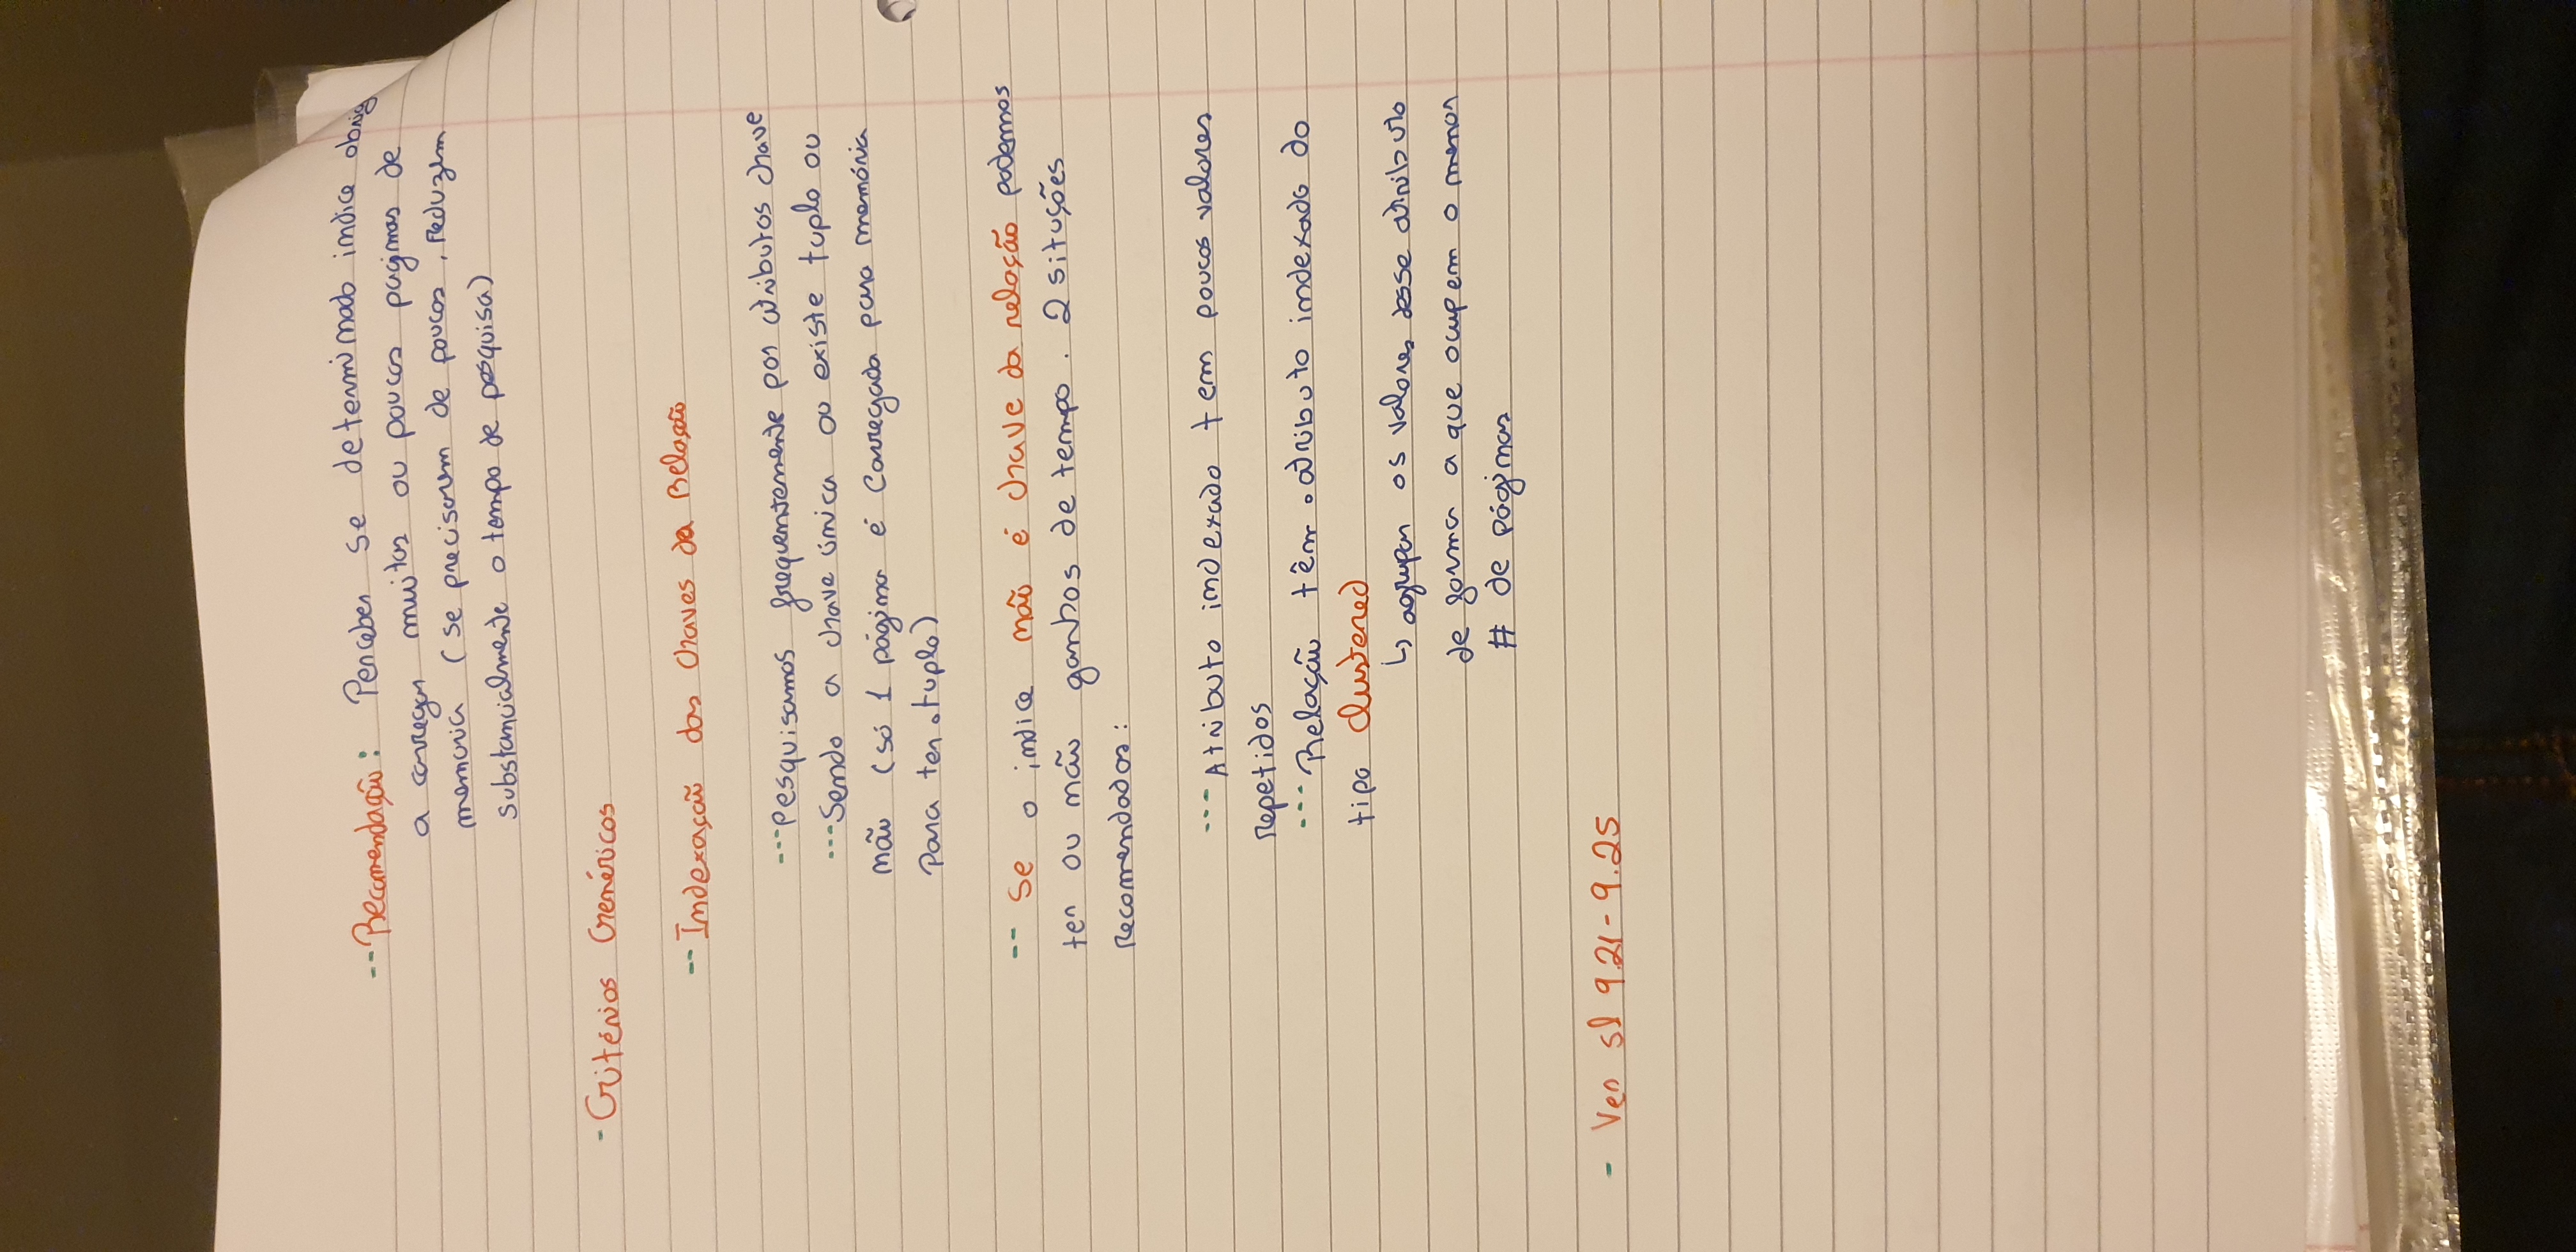 -- Recomendação: Perceber se determinado indice obrig
a carregar muitas ou poucas paginas de
memoria (se precisarem de poucas, reduzem
substancialmente o tempo de pesquisa)
- Critérios Genéricos
-- Indexação das Chaves da Relação
--- Pesquisamos frequentemente por atributos chave
--- Sendo a chave única ou existe tuplo ou
não (só 1 página é carregada para memória
para ter o tuplo)
-- Se o indice não é chave da relação podemos
ter ou não ganhos de tempo. 2 situções
recomendadas:
--- Atributo indexado tem poucos valores
repetidos
--- Relação têm o atributo indexado do
tipo clustered
↳ agrupar os valores desse atributo
de forma a que ocupem o menor
# de páginas
- Ver sl 9.21 - 9.25